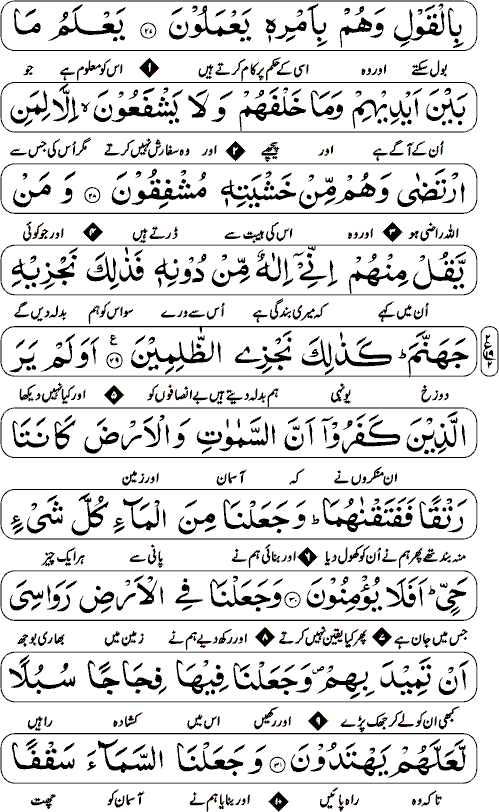 بِالْقَوْلِ وَهُمْ بِاَمْرِهٖ يَعْمَلُوْنَ ۝۲۷ يَعْلَمُ مَا
بول سکتے اور وہ اسی کے حکم پر کام کرتے ہیں ۱ اس کو معلوم ہے جو
بَيْنَ اَيْدِيْهِمْ وَمَا خَلْفَهُمْ وَلَا يَشْفَعُوْنَ ۙ اِلَّا لِمَنِ
اُن کے آگے ہے اور پیچھے ۲ اور وہ سفارش نہیں کرتے مگر اُس کی جس سے
ارْتَضٰى وَهُمْ مِّنْ خَشْيَتِهٖ مُشْفِقُوْنَ ۝۲۸ وَمَنْ
اللہ راضی ہو ۳ اور وہ اس کی ہیبت سے ڈرتے ہیں ۴ اور جو کوئی
يَّقُلْ مِنْهُمْ اِنِّيْۤ اِلٰهٌ مِّنْ دُوْنِهٖ فَذٰلِكَ نَجْزِيْهِ
اُن میں کہے کہ میری بندگی ہے اُس سے ورے سو اس کو ہم بدلہ دیں گے
جَهَنَّمَ ؕ كَذٰلِكَ نَجْزِي الظّٰلِمِيْنَ ۝۲۹ ع اَوَلَمْ يَرَ
دوزخ یونہی ہم بدلہ دیتے ہیں بے انصافوں کو ۵ اور کیا نہیں دیکھا
الَّذِيْنَ كَفَرُوْۤا اَنَّ السَّمٰوٰتِ وَالْاَرْضَ كَانَتَا
ان منکروں نے کہ آسمان اور زمین
رَتْقًا فَفَتَقْنٰهُمَا ؕ وَجَعَلْنَا مِنَ الْمَآءِ كُلَّ شَيْءٍ
منہ بند تھے پھر ہم نے اُن کو کھول دیا ۶ اور بنائی ہم نے پانی سے ہر ایک چیز
حَيٍّ ؕ اَفَلَا يُؤْمِنُوْنَ ۝۳۰ وَجَعَلْنَا فِي الْاَرْضِ رَوَاسِيَ
جس میں جان ہے ۷ پھر کیا یقین نہیں کرتے ۸ اور رکھ دیے ہم نے زمین میں بھاری بوجھ
اَنْ تَمِيْدَ بِهِمْ ۪ وَجَعَلْنَا فِيْهَا فِجَاجًا سُبُلًا
کبھی ان کو لے کر جھک پڑے ۹ اور رکھیں اس میں کشادہ راہیں
لَّعَلَّهُمْ يَهْتَدُوْنَ ۝۳۱ وَجَعَلْنَا السَّمَآءَ سَقْفًا
تاکہ وہ راہ پائیں ۱۰ اور بنایا ہم نے آسمان کو چھت